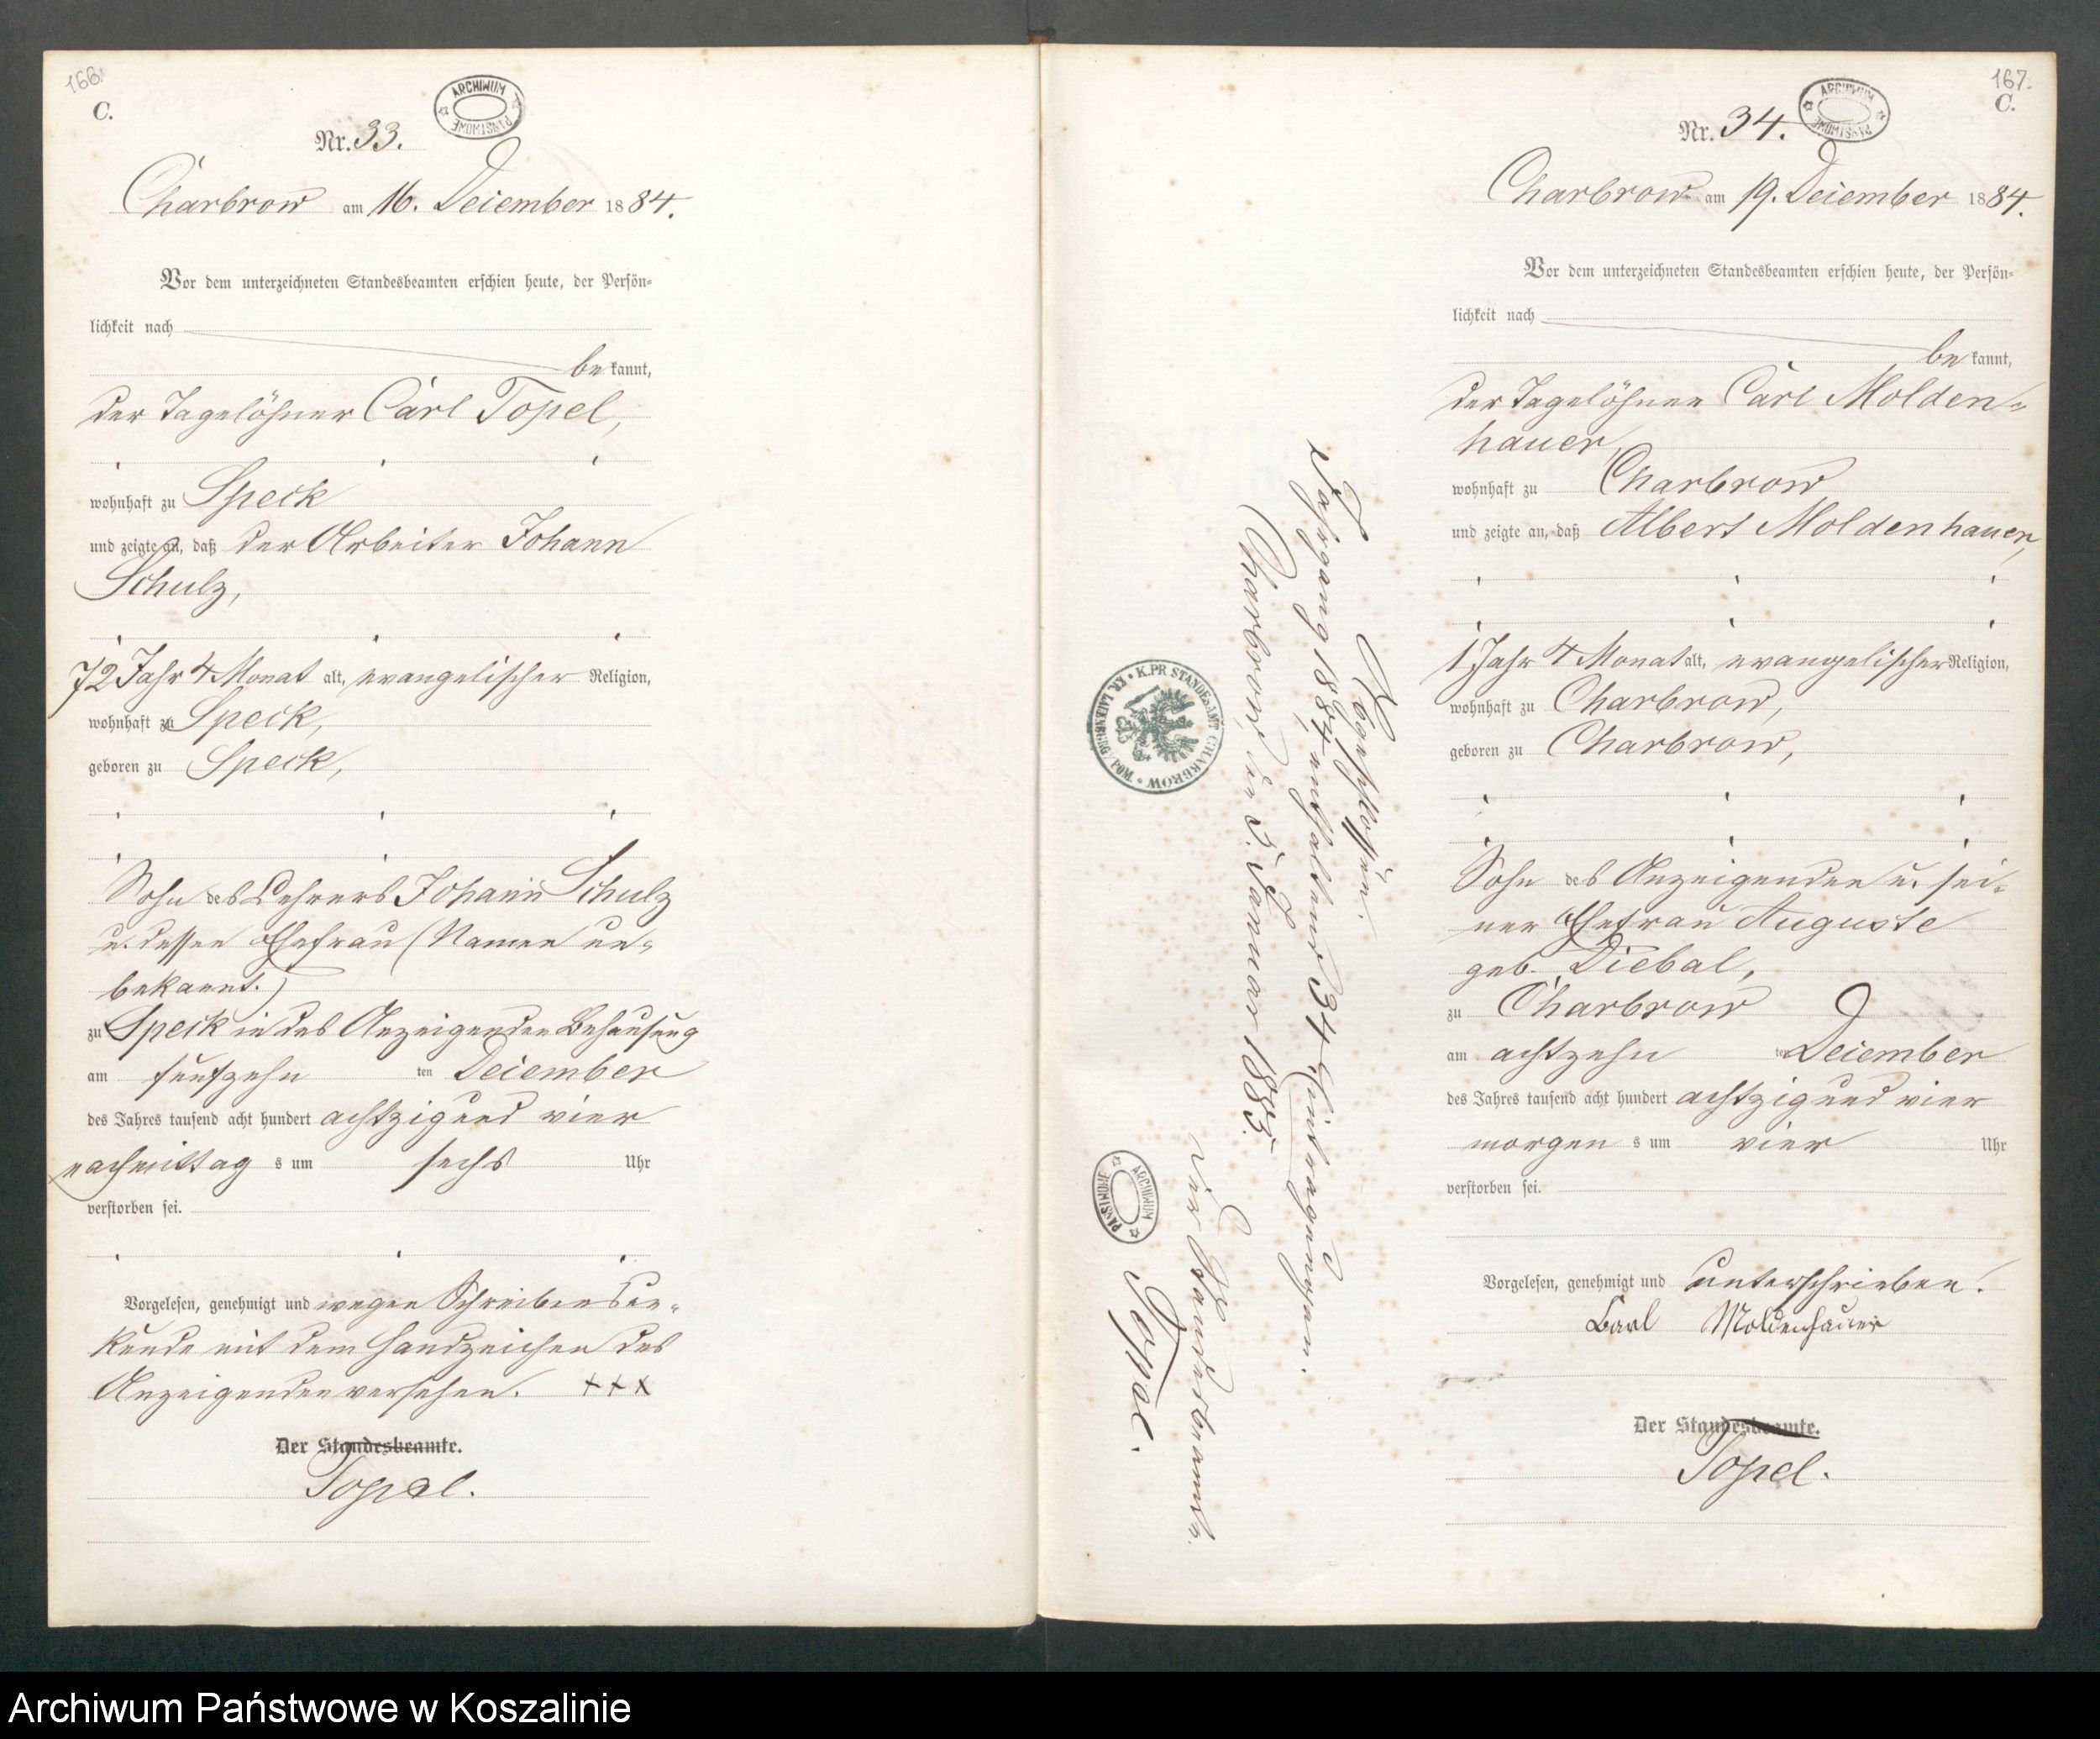 166.
C.
ARCHIWUM PAŃSTWOWE
Nr. 33.
Charbrow am 16. December 1884.
Vor dem unterzeichneten Standesbeamten erschien heute, der Persön-
lichkeit nach
be kannt,
der Tagelöhner Carl Topel,
wohnhaft zu Speck
und zeigte an, daß der Arbeiter Johann
Schulz,
72 Jahr 4 Monat alt, evangelischer Religion,
wohnhaft zu Speck,
geboren zu Speck,
Sohn des Lehrers Johann Schulz
u. dessen Ehefrau (Namen un-
bekannt.)
zu Speck in des Anzeigenden Behausung
am fünfzehn ten December
des Jahres tausend acht hundert achtzig und vier
nachmittag s um sechs Uhr
verstorben sei.
Vorgelesen, genehmigt und wegen Schreibensun-
kunde mit dem Handzeichen des
Anzeigenden versehen. +++
Der Standesbeamte.
Topel.
167.
C.
ARCHIWUM PAŃSTWOWE
Nr. 34.
Charbrow am 19. December 1884.
Vor dem unterzeichneten Standesbeamten erschien heute, der Persön-
lichkeit nach
be kannt,
der Tagelöhner Carl Molden-
hauer,
wohnhaft zu Charbrow
und zeigte an, daß Albert Moldenhauer,
1 Jahr 4 Monat alt, evangelischer Religion,
wohnhaft zu Charbrow,
geboren zu Charbrow,
Sohn des Anzeigenden u. sei-
ner Ehefrau Auguste
geb. Diebal,
zu Charbrow
am achtzehn ten December
des Jahres tausend acht hundert achtzig und vier
morgen s um vier Uhr
verstorben sei.
Vorgelesen, genehmigt und unterschrieben.
Carl Moldenhauer
Der Standesbeamte.
Topel.
Abgeschlossen.
Jahrgang 1884 enthaltend 34 Eintragungen.
Charbrow, den 2. Januar 1885.
Der Standesbeamte.
Topel.
K. PR STANDESAMT CHARBROW * KR. LAUENBURG/POM. *
ARCHIWUM PAŃSTWOWE
Archiwum Państwowe w Koszalinie